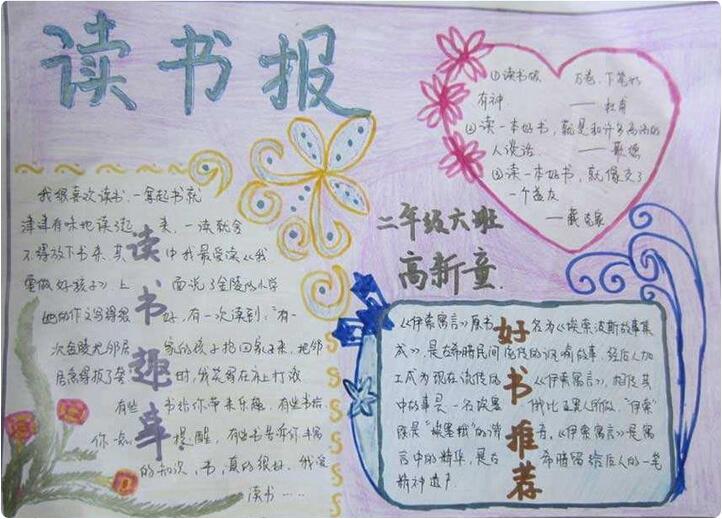 读书报
我很喜欢读书,一拿起书就
津津有味地读了起来,一读就会
不得放下书来,其中我最爱读《我
要做好孩子》上面说了金陵的小学
她的作文写得很好,有一次读到,“有一
次金陵把邻居家的孩子抱回家了来,把邻
居急得报了警时,我笑得在床上打滚
有些书给你带来乐趣,有些书给
你一点提醒,有些书告诉你丰富
的知识,书,真的很好,我爱
读书……
读书趣事
①读书破万卷,下笔如
有神——杜甫
②读一本好书,就是和许多高尚的
人谈话——歌德
③读一本好书,就像交了
一个益友
——臧克家
二年级六班
高新童.
《伊索寓言》原书名为《埃索波斯故事集
成》,是古希腊民间流传的讽喻故事,经后人加
工成为现在流传的《伊索寓言》,相传其
中故事是一名埃塞俄比亚黑人所做,“伊索”
既是“埃塞俄”的谐音。《伊索寓言》是寓
言中的精华,是古希腊留给后人的一笔
精神遗产
好书推荐